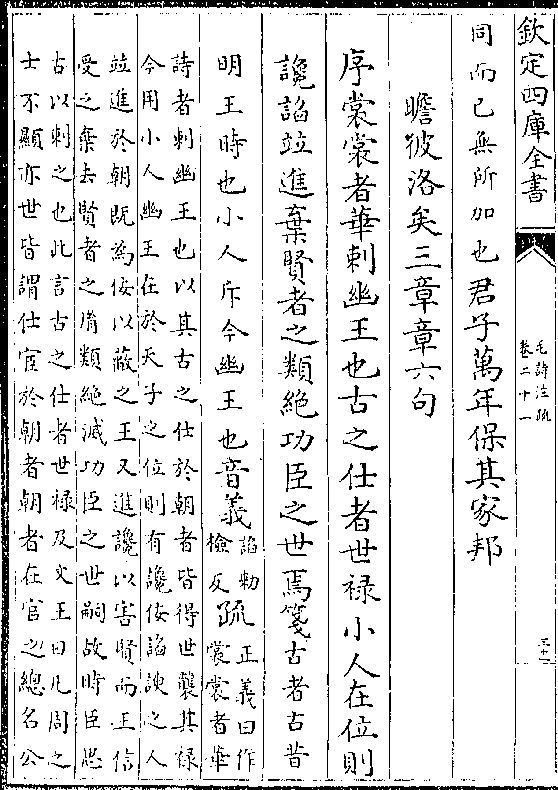 欽定四庫全書
毛詩注疏
卷二十一
三十一
同而已無所加也君子萬年保其家邦
瞻彼洛矣三章章六句
序裳裳者華刺幽王也古之仕者世禄小人在位則
讒諂竝進棄賢者之類絶功臣之世焉箋古者古昔
明王時也小人斥今幽王也音義諂勅檢反疏正義曰作裳裳者華
詩者刺幽王也以其古之仕於朝者皆得世襲其禄
今用小人幽王在於天子之位則有讒佞諂諛之人
竝進於朝既為佞以蔽之王又進讒以害賢而王信
受之棄去賢者之胤類絶滅功臣之世嗣故時臣思
古以刺之也此言古之仕者世禄及文王曰凡周之
士不顯亦世皆謂仕宦於朝者朝者在官之總名公